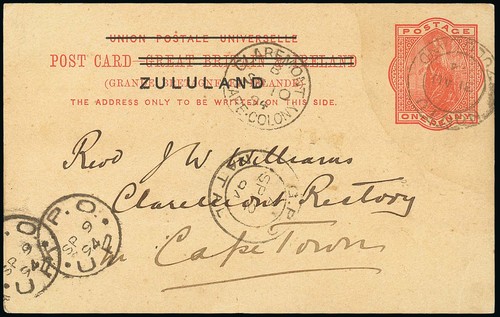 UNION POSTALE UNIVERSELLE
POST CARD GREAT BRITAIN & IRELAND
(GRANDE BRETAGNE ET IRLANDE)
ZULULAND
THE ADDRESS ONLY TO BE WRITTEN ON THIS SIDE.
POSTAGE
ONE PENNY
CLAREMONT
SP 10
94
CAPE COLONY
Revd J W Williams
Claremont Rectory
Cape Town
G.P.O
SP
94
NATAL
P.O.
SP 9
94
P.O.
SP 9
94